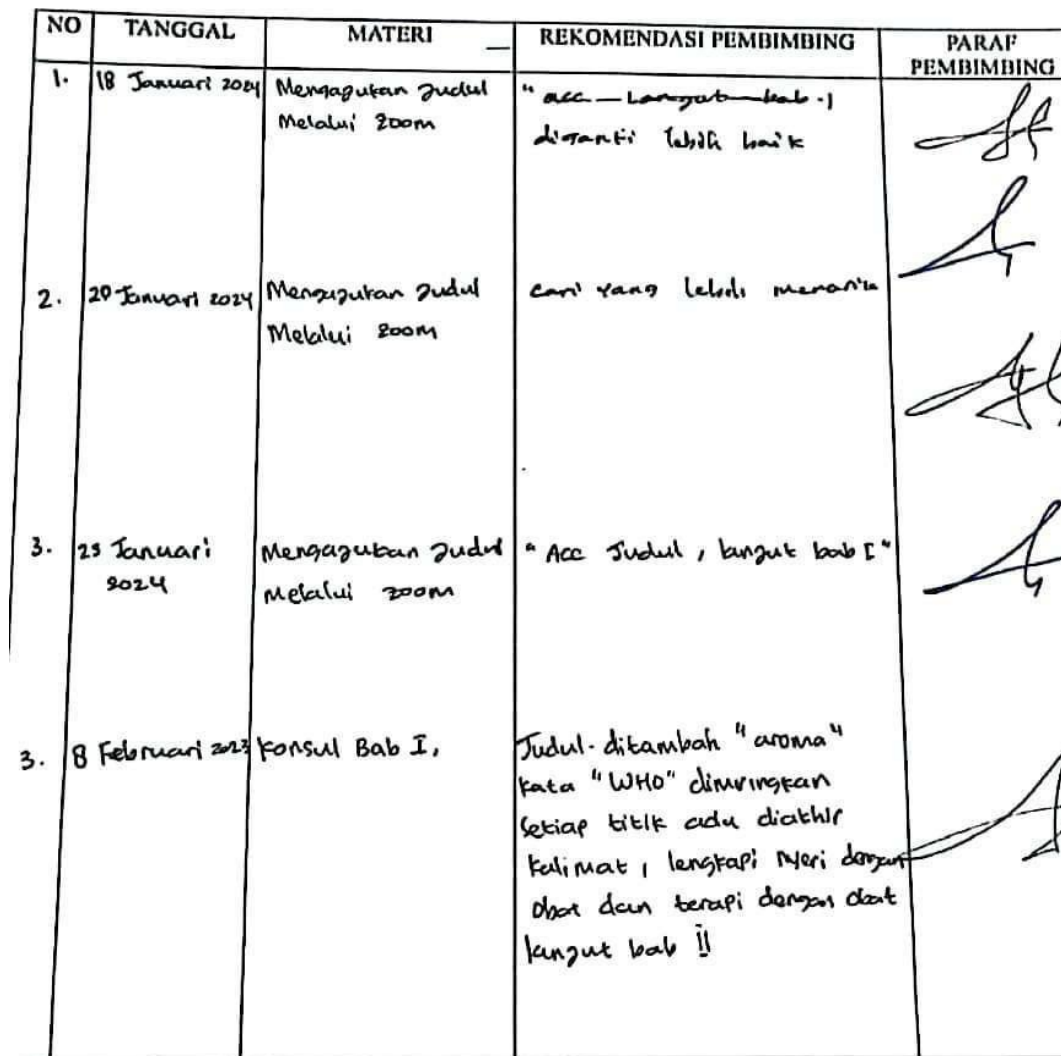 NO TANGGAL MATERI REKOMENDASI PEMBIMBING PARAF PEMBIMBING
1. 18 Januari 2024 Mengajukan Judul "acc lanjut bab 1
Melalui Zoom diganti lebih baik
2. 20 Januari 2024 Mengajukan Judul cari yang lebih menarik
Melalui Zoom
3. 25 Januari Mengajukan Judul "Acc Judul, lanjut bab I"
2024 Melalui Zoom
3. 8 Februari 2023 Konsul Bab I, Judul ditambah "aroma"
kata "WHO" dimiringkan
Setiap titik ada diakhir
kalimat, lengkapi nyeri dengan
obat dan terapi dengan obat
lanjut bab II